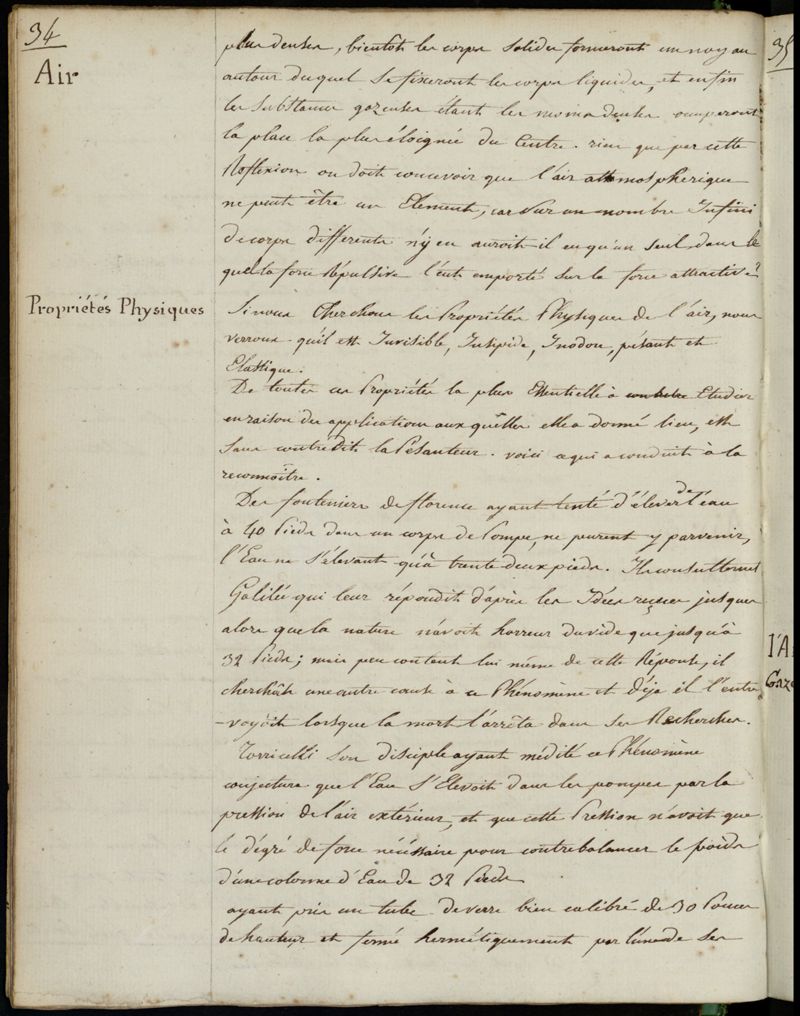 34
Air
plus denses, bientôt les corps solides formeront un noyau
autour duquel se fixeront les corps liquides, et enfin
les substances gazeuses étant les moins denses occuperont
la place la plus éloignée du Centre. rien que par cette
Réflexion on doit concevoir que l'air athmospherique
ne peut être un Element, car sur un nombre Infini
de corps differents n'y en auroit-il eu qu'un seul dans le
quel la force répulsive l'eut emporté sur la force attractive?
Propriétés Physiques
Si nous Cherchons les Propriétés Physiques de l'air, nous
verrons qu'il est Invisible, Insipide, Inodore, pésant et
Elastique.
De toutes ces Propriétés la plus Essentielle à Etudier
en raison des applications auxquelles elle a donné lieu, est
sans contredit la Pésanteur. voici ce qui a conduit à la
reconnoître.
Des fonteniers de florence ayant tenté d'élever de l'eau
à 40 Pieds dans un corps de Pompe, ne purent y parvenir,
l'Eau ne s'élevant qu'à trente deux pieds. Ils consulterent
Galilée qui leur répondit d'après les Idées reçues jusques
alors que la nature n'avoit horreur du vide que jusqu'à
32 Pieds; mais peu content lui même de cette Réponse, il
cherchât une autre cause à ce Phénomène et déja il l'entre
-voyoit lorsque la mort l'arrêta dans ses Recherches.
Torricelli son disciple ayant médité ce Phénomène
conjectura que l'Eau s'Elevoit dans les pompes par la
pression de l'air extérieur, et que cette Pression n'avoit que
le dégré de force nécessaire pour contrebalancer le poids
d'une colonne d'Eau de 32 Pieds
ayant pris un tube de verre bien calibré de 30 Pouces
de hauteur et fermé hermétiquement par l'une de ses
35
l'A
Gaze